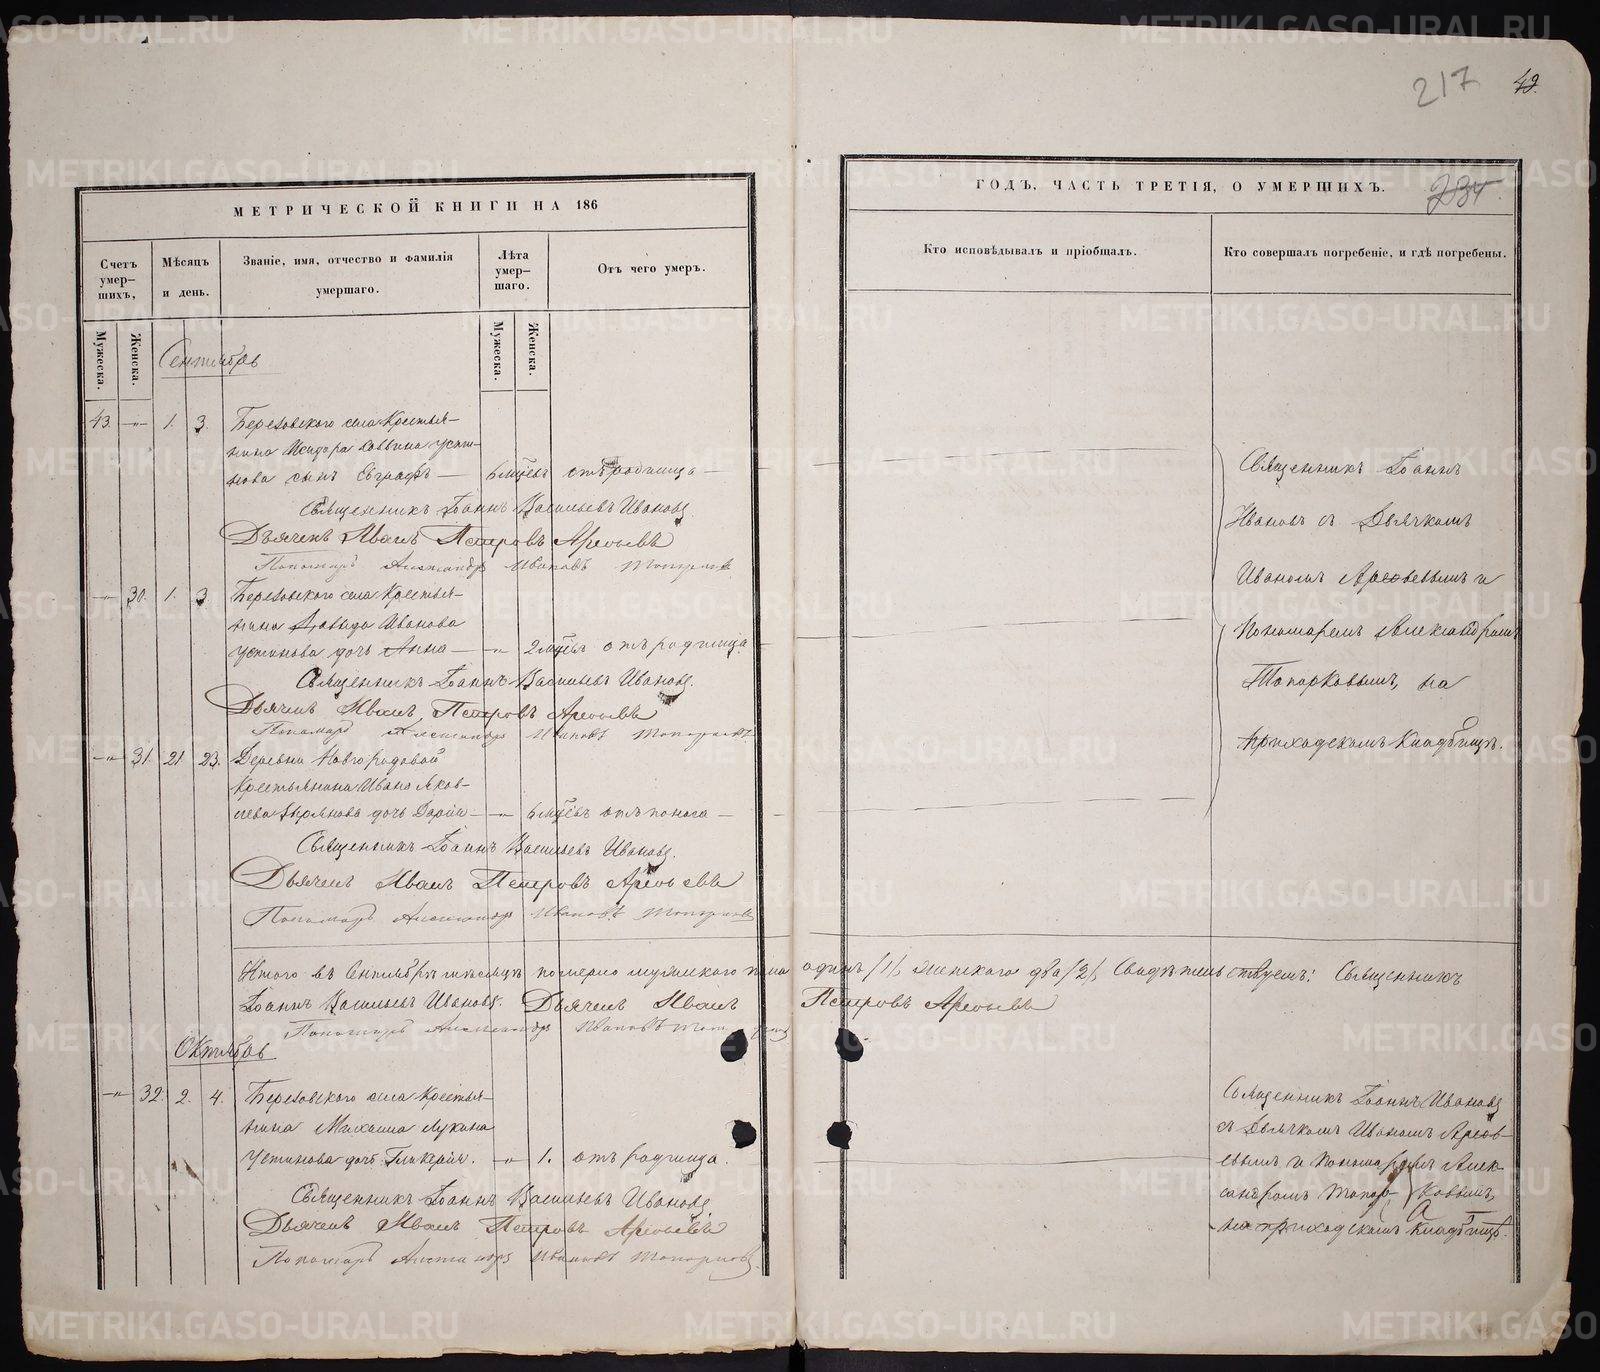 METRIKI.GASO-URAL.RU
217
42.
МЕТРИЧЕСКОЙ КНИГИ НА 186
ГОДЪ, ЧАСТЬ ТРЕТІЯ, О УМЕРШИХЪ.
234.
Счетъ умер-шихъ,
Мѣсяцъ и день.
Званіе, имя, отчество и фамилія умершаго.
Лѣта умер-шаго.
Отъ чего умеръ.
Кто исповѣдывалъ и пріобщалъ.
Кто совершалъ погребеніе, и гдѣ погребены.
Мужеска.
Женска.
Мужеска.
Женска.
Сентябрь
43. -"- 1. 3. Березовскаго села Крестья-
нина Исидора Саввина Усти-
нова сынъ Евграфъ — 6 мцевъ отъ родимца —
Священникъ Іоаннъ Васильевъ Ивановъ.
Дьячекъ Иванъ Петровъ Арефьевъ
Пономарь Александръ Ивановъ Топорковъ
-"- 30. 1. 3 Березовскаго села Крестья-
нина Давыда Иванова
Устинова дочь Анна — -"- 2 мцевъ отъ родимца.
Священникъ Іоаннъ Васильевъ Ивановъ.
Дьячекъ Иванъ Петровъ Арефьевъ
Пономарь Александръ Ивановъ Топорковъ
-"- 31. 21 23. Деревни Новгородовой
Крестьянина Ивана Яков-
лева дочь Дарія — -"- 6 мцевъ отъ поноса —
Священникъ Іоаннъ Васильевъ Ивановъ.
Дьячекъ Иванъ Петровъ Арефьевъ
Пономарь Александръ Ивановъ Топорковъ
Священникъ Іоаннъ
Ивановъ съ Дьячкомъ
Иваномъ Арефьевымъ и
Пономаремъ Александромъ
Топорковымъ, на
приходскомъ кладбищѣ.
Итого въ Сентябрѣ мѣсяцѣ померло мужескаго пола одинъ /1/, женскаго два /2/, Свидѣтельствуемъ: Священникъ
Іоаннъ Васильевъ Ивановъ. Дьячекъ Иванъ Петровъ Арефьевъ
Пономарь Александръ Ивановъ Топорковъ
Октябрь
-"- 32. 2. 4. Березовскаго села Крестья-
нина Михаила Лукина
Устинова дочь Гликерія. — -"- 1. отъ родимца.
Священникъ Іоаннъ Васильевъ Ивановъ.
Дьячекъ Иванъ Петровъ Арефьевъ
Пономарь Александръ Ивановъ Топорковъ
Священникъ Іоаннъ Ивановъ
съ Дьячкомъ Иваномъ Арефь-
евымъ и Пономаремъ Алек-
сандромъ Топор-ковымъ,
на приходскомъ кладбищѣ.